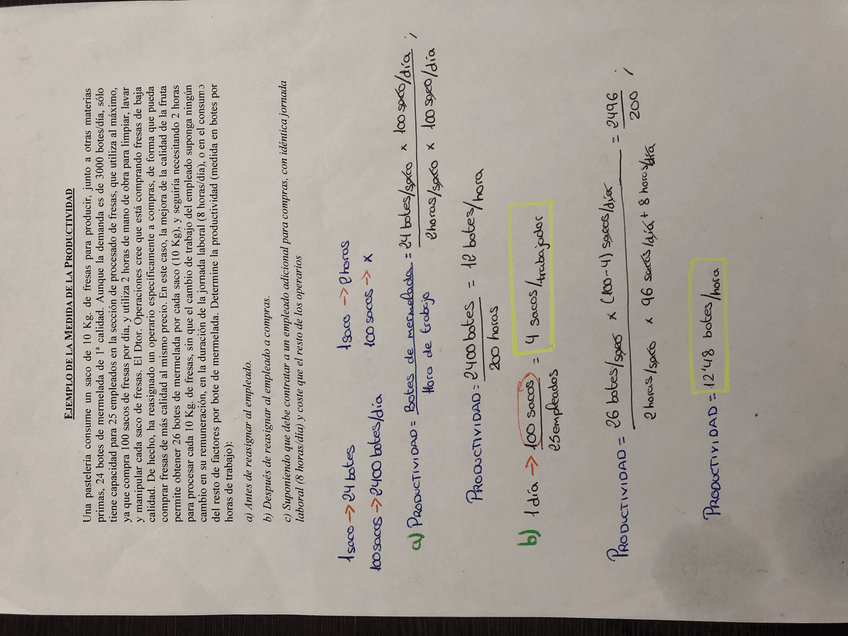 EJEMPLO DE LA MEDIDA DE LA PRODUCTIVIDAD
Una pastelería consume un saco de 10 Kg. de fresas para producir, junto a otras materias
primas, 24 botes de mermelada de 1ª calidad. Aunque la demanda es de 3000 botes/día, sólo
tiene capacidad para 25 empleados en la sección de procesado de fresas, que utiliza al máximo,
ya que compra 100 sacos de fresas por día, y utiliza 2 horas de mano de obra para limpiar, lavar
y manipular cada saco de fresas. El Dtor. Operaciones cree que está comprando fresas de baja
calidad. De hecho, ha reasignado un operario específicamente a compras, de forma que pueda
comprar fresas de más calidad al mismo precio. En este caso, la mejora de la calidad de la fruta
permite obtener 26 botes de mermelada por cada saco (10 Kg), y seguiría necesitando 2 horas
para procesar cada 10 Kg. de fresas, sin que el cambio de trabajo del empleado suponga ningún
cambio en su remuneración, en la duración de la jornada laboral (8 horas/día), o en el consumo
del resto de factores por bote de mermelada. Determine la productividad (medida en botes por
horas de trabajo):
a) Antes de reasignar al empleado.
b) Después de reasignar al empleado a compras.
c) Suponiendo que debe contratar a un empleado adicional para compras, con idéntica jornada
laboral (8 horas/día) y coste que el resto de los operarios
1 saco → 24 botes 1 saco → 2 horas
100 sacos → 2400 botes/día 100 sacos → x
a) PRODUCTIVIDAD = Botes de mermelada / Hora de trabajo = 24 botes/saco x 100 saco/día / 2 horas/saco x 100 saco/día ;
PRODUCTIVIDAD = 2400 botes / 200 horas = 12 botes/hora
b) 1 día → 100 sacos / 25 empleados = 4 sacos/trabajador
PRODUCTIVIDAD = 26 botes/saco x (100-4) sacos/día / 2 horas/saco x 96 sacos/día + 8 horas/día = 2496 / 200 ;
PRODUCTIVIDAD = 12'48 botes/hora